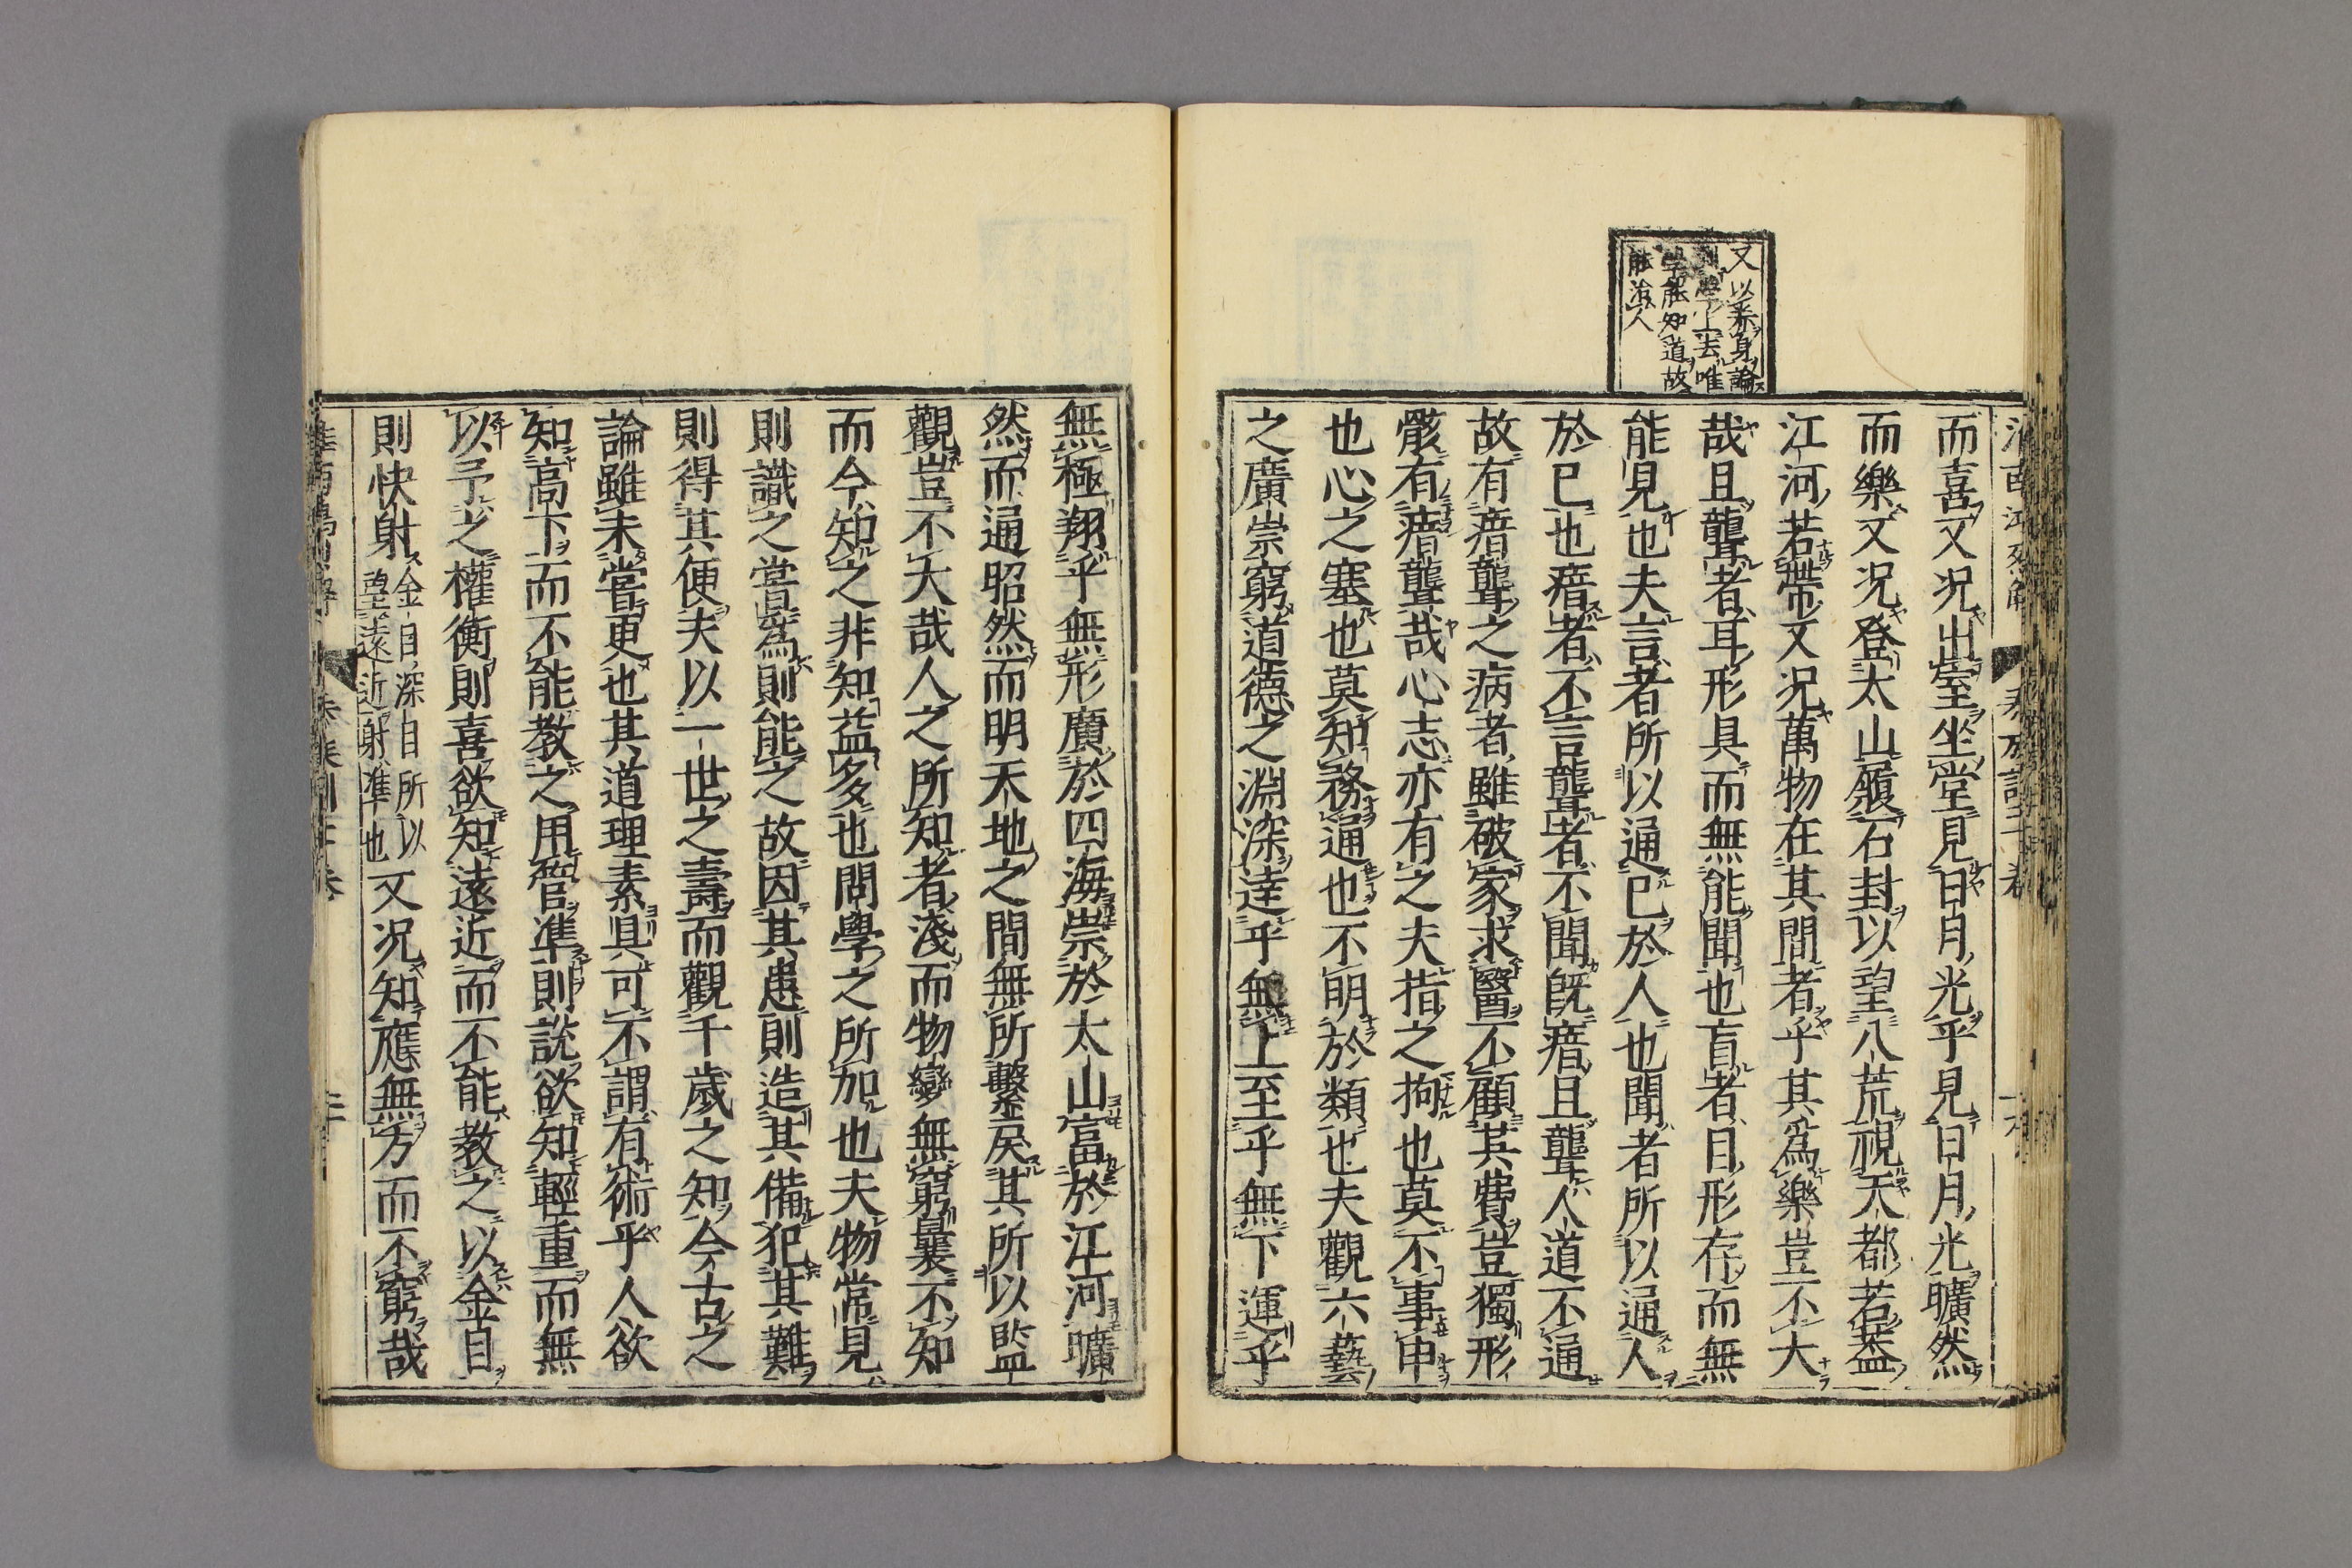 又以養身論
學上去唯
學能知道故
能治人
而喜又况出室坐堂見日月光乎見日月光曠然
而樂又况登太山履石封以望八荒視天都若蓋
江河若帶又况萬物在其間者乎其爲樂豈不大
哉且聾者耳形具而無能聞也盲者目形存而無
能見也夫言者所以通已於人也聞者所以通人
於已也瘖者不言聾者不聞既瘖且聾人道不通
故有瘖聾之病者雖破家求醫不顧其費豈獨形
骸有瘖聾哉心志亦有之夫指之拘也莫不事申
也心之塞也莫知務通也不明於類也夫觀六藝
之廣崇窮道德之淵深達乎無上至乎無下運乎
無極翔乎無形廣於四海崇於太山富於江河曠
然而通昭然而明天地之間無所繫戾其所以監
觀豈不大哉人之所知者淺而物變無窮曩不知
而今知之非知益多也問學之所加也夫物常見
則識之嘗爲則能之故因其患則造其備犯其難
則得其便夫以一世之壽而觀千歲之知今古之
論雖未嘗更也其道理素具可不謂有術乎人欲
知高下而不能教之用管準則説欲知輕重而無
以予之權衡則喜欲知遠近而不能教之以金目
則快射
金目深目所以
望遠近射準也
又况知應無方而不窮哉